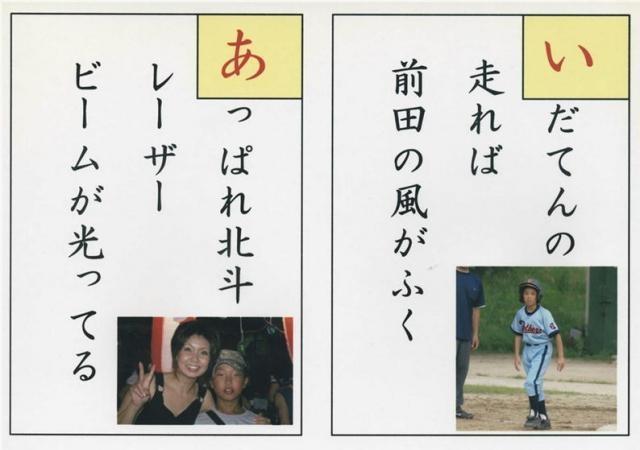 いだてんの
走れば
前田の風がふく
あっぱれ北斗
レーザー
ビームが光ってる